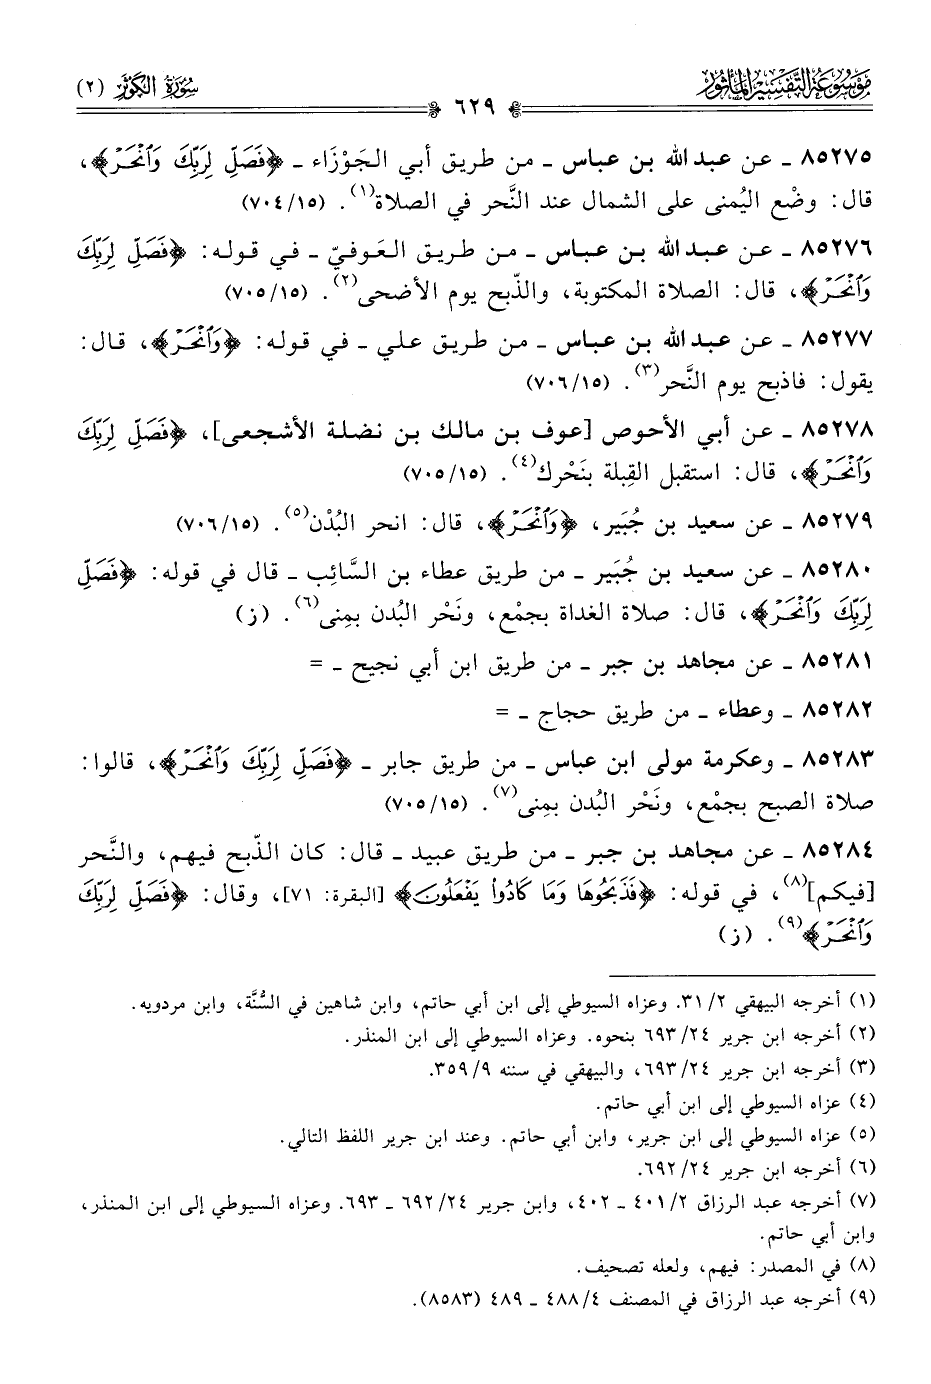 موسوعة التفسير المأثور
سورة الكوثر (٢)
٦٢٩
٨٥٢٧٥ ـ عن عبد الله بن عباس ـ من طريق أبي الجَوْزَاء ـ ﴿فَصَلِّ لِرَبِّكَ وَٱنْحَرْ﴾،
قال: وضْع اليُمنى على الشمال عند النَّحر في الصلاة(١). (١٥/ ٧٠٤)
٨٥٢٧٦ ـ عن عبد الله بن عباس ـ من طريق العَوفيّ ـ في قوله: ﴿فَصَلِّ لِرَبِّكَ
وَٱنْحَرْ﴾، قال: الصلاة المكتوبة، والذّبح يوم الأضحى(٢). (١٥/ ٧٠٥)
٨٥٢٧٧ ـ عن عبد الله بن عباس ـ من طريق علي ـ في قوله: ﴿وَٱنْحَرْ﴾، قال:
يقول: فاذبح يوم النَّحر(٣). (١٥/ ٧٠٦)
٨٥٢٧٨ ـ عن أبي الأحوص [عوف بن مالك بن نضلة الأشجعي]، ﴿فَصَلِّ لِرَبِّكَ
وَٱنْحَرْ﴾، قال: استقبل القِبلة بنَحْرك(٤). (١٥/ ٧٠٥)
٨٥٢٧٩ ـ عن سعيد بن جُبَير، ﴿وَٱنْحَرْ﴾، قال: انحر البُدْن(٥). (١٥/ ٧٠٦)
٨٥٢٨٠ ـ عن سعيد بن جُبَير ـ من طريق عطاء بن السَّائِب ـ قال في قوله: ﴿فَصَلِّ
لِرَبِّكَ وَٱنْحَرْ﴾، قال: صلاة الغداة بجمْع، ونَحْر البُدن بمِنى(٦). (ز)
٨٥٢٨١ ـ عن مجاهد بن جبر ـ من طريق ابن أبي نجيح ـ =
٨٥٢٨٢ ـ وعطاء ـ من طريق حجاج ـ =
٨٥٢٨٣ ـ وعكرمة مولى ابن عباس ـ من طريق جابر ـ ﴿فَصَلِّ لِرَبِّكَ وَٱنْحَرْ﴾، قالوا:
صلاة الصبح بجمْع، ونَحْر البُدن بمِنى(٧). (١٥/ ٧٠٥)
٨٥٢٨٤ ـ عن مجاهد بن جبر ـ من طريق عبيد ـ قال: كان الذّبح فيهم، والنَّحر
[فيكم](٨)، في قوله: ﴿فَذَبَحُوهَا وَمَا كَادُوا۟ يَفْعَلُونَ﴾ [البقرة: ٧١]، وقال: ﴿فَصَلِّ لِرَبِّكَ
وَٱنْحَرْ﴾(٩). (ز)
(١) أخرجه البيهقي ٢/ ٣١. وعزاه السيوطي إلى ابن أبي حاتم، وابن شاهين في السُّنَّة، وابن مردويه.
(٢) أخرجه ابن جرير ٢٤/ ٦٩٣ بنحوه. وعزاه السيوطي إلى ابن المنذر.
(٣) أخرجه ابن جرير ٢٤/ ٦٩٣، والبيهقي في سننه ٩/ ٣٥٩.
(٤) عزاه السيوطي إلى ابن أبي حاتم.
(٥) عزاه السيوطي إلى ابن جرير، وابن أبي حاتم. وعند ابن جرير اللفظ التالي.
(٦) أخرجه ابن جرير ٢٤/ ٦٩٢.
(٧) أخرجه عبد الرزاق ٢/ ٤٠١ ـ ٤٠٢، وابن جرير ٢٤/ ٦٩٢ ـ ٦٩٣. وعزاه السيوطي إلى ابن المنذر،
وابن أبي حاتم.
(٨) في المصدر: فيهم، ولعله تصحيف.
(٩) أخرجه عبد الرزاق في المصنف ٤/ ٤٨٨ ـ ٤٨٩ (٨٥٨٣).